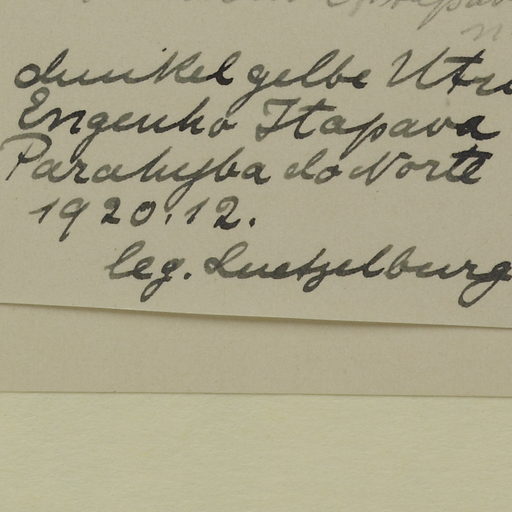 dunkel gelbe Utri
Engenho Itapava
Parahyba do Norte
1920.12.
leg. Luetzelburg